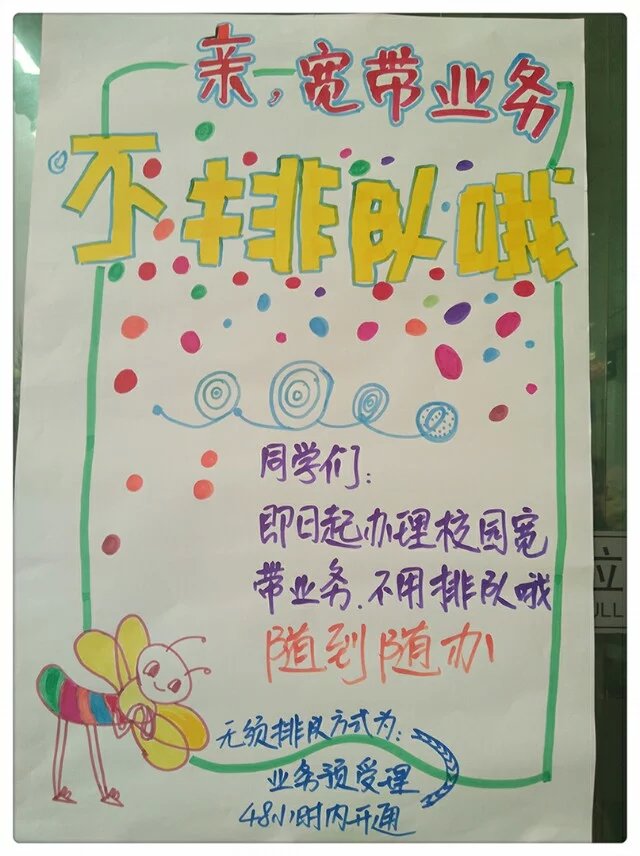 亲,宽带业务
不排队哦
同学们:
即日起办理校园宽
带业务.不用排队哦
随到随办
无须排队方式为:
业务预受理
48小时内开通